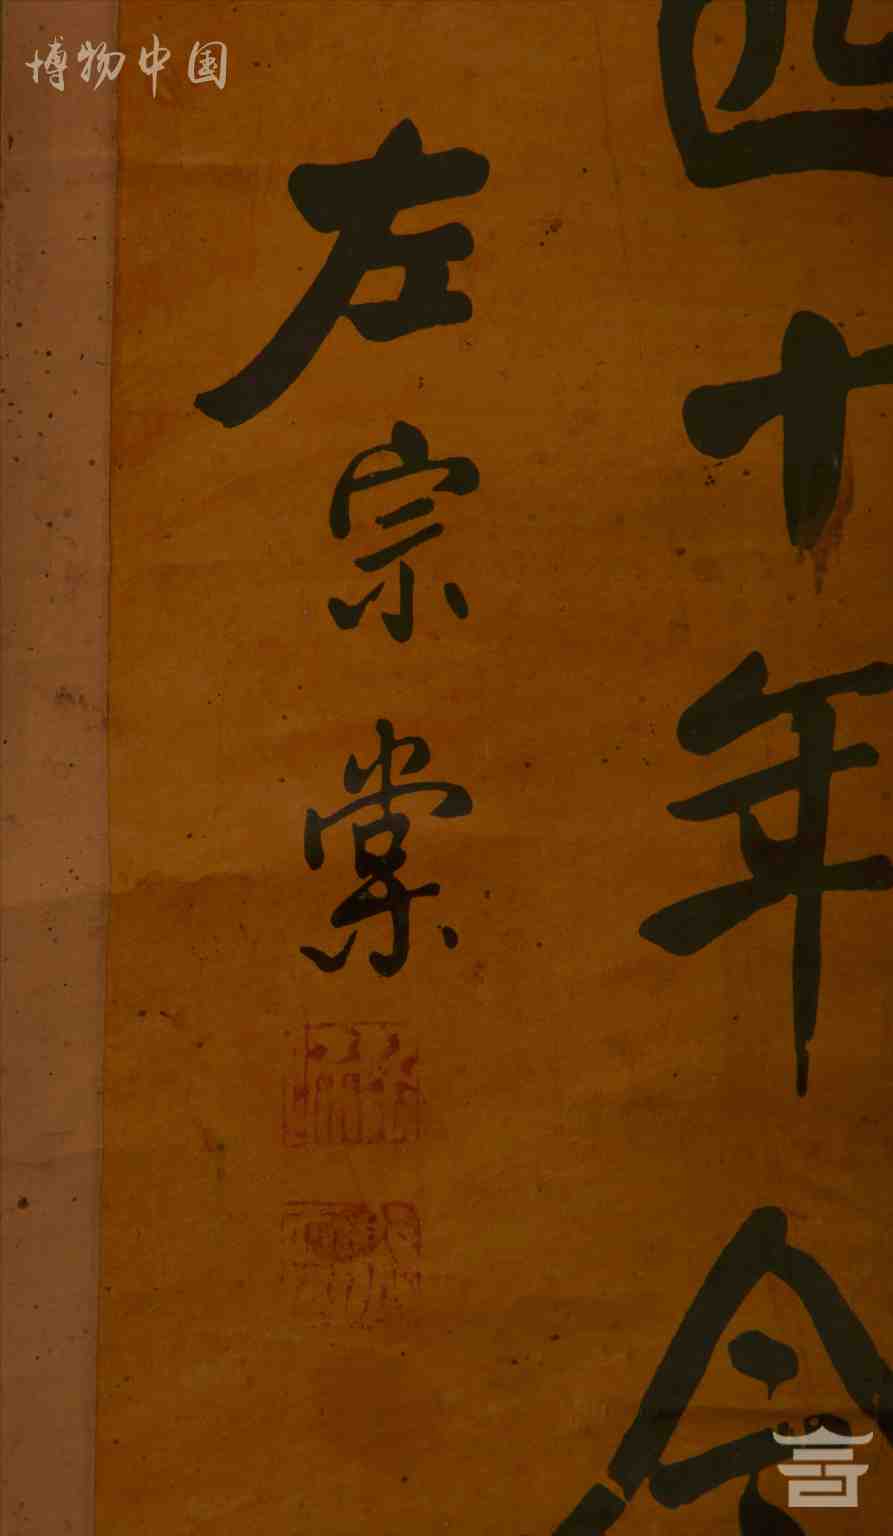 博物中国
四十年今
左宗棠